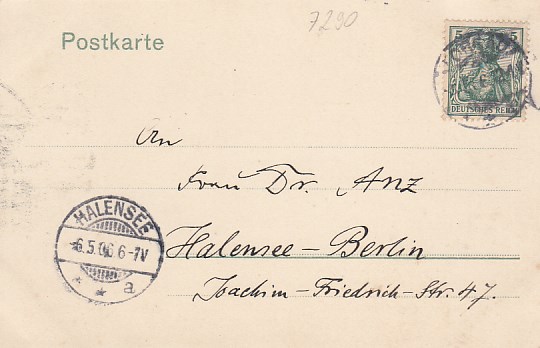 7290
Postkarte
5 5
DEUTSCHES REICH
An
Frau Dr. Anz
HALENSEE
6.5.06.6-7V
* * a
Halensee-Berlin
Joachim-Friedrich-Str. 47.